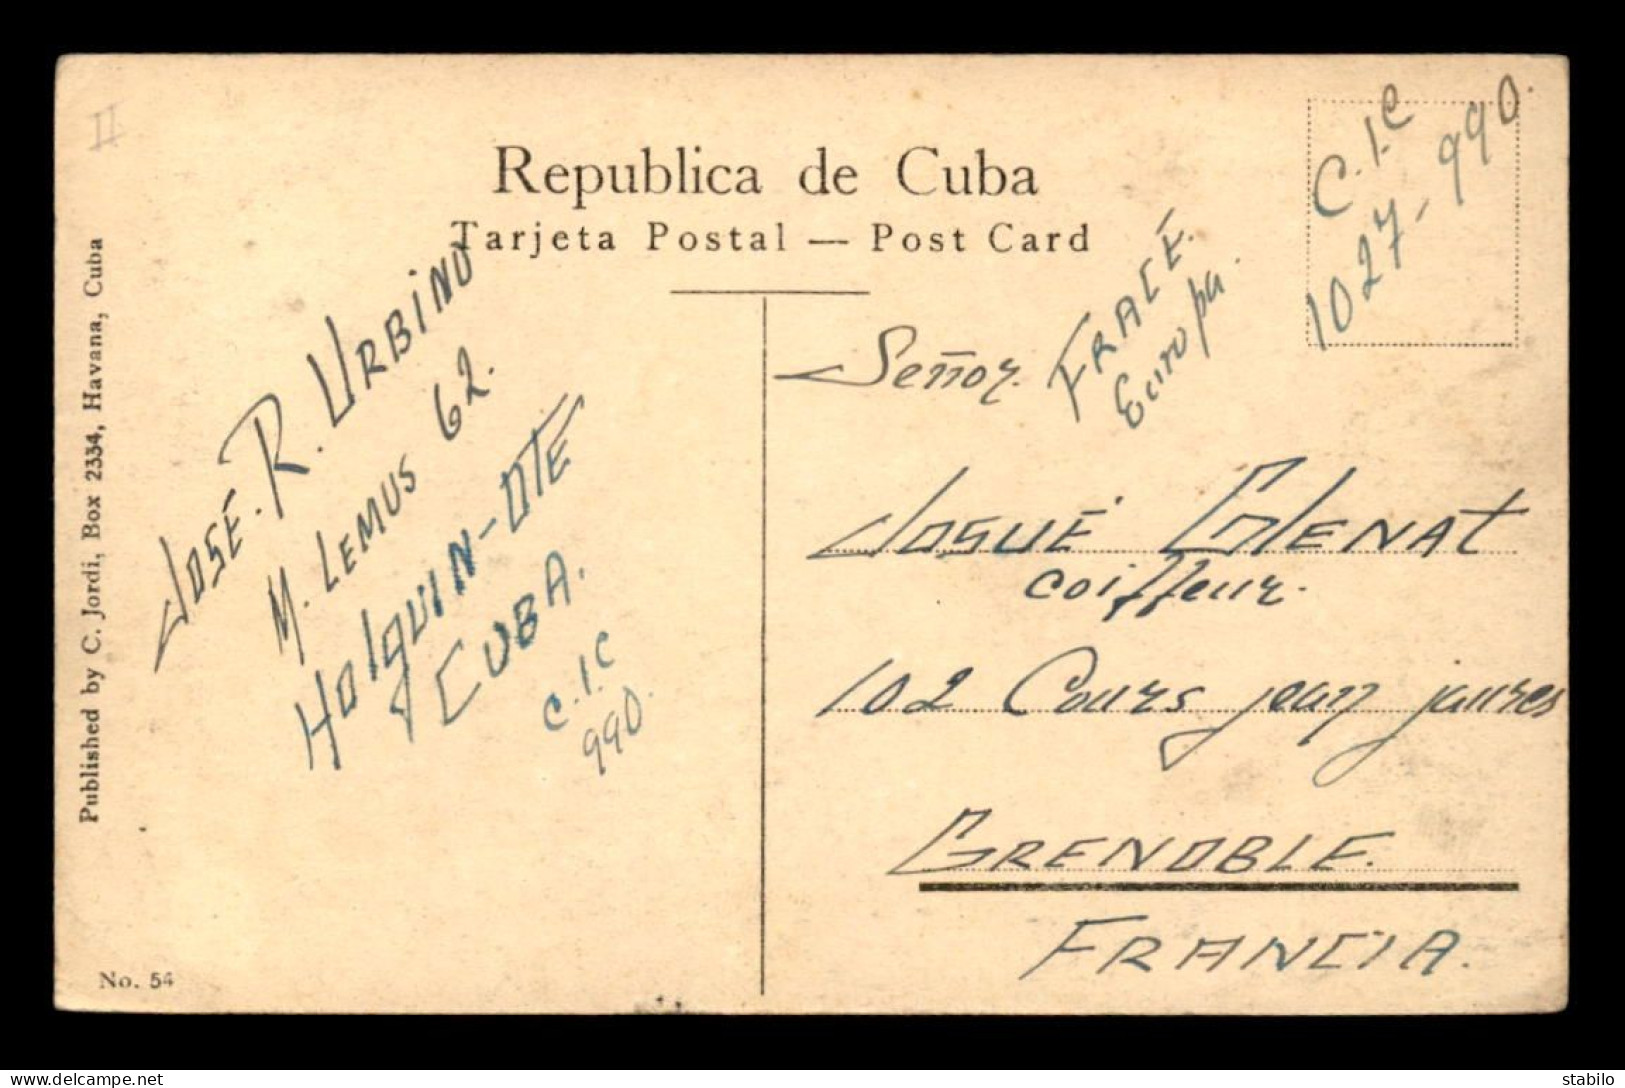 II
Republica de Cuba
Tarjeta Postal — Post Card
Published by C. Jordi, Box 2334, Havana, Cuba
No. 54
José. R. Urbino
M. Lemus 62.
Holguin-Ote
Cuba.
C.I.C
990.
C.I.C
1027-990.
Francé.
Europa.
Señor.
Josué Colenat
coiffeur.
102 Cours jean jaures
Grenoble.
Francia.
delcampe.net
stabilo